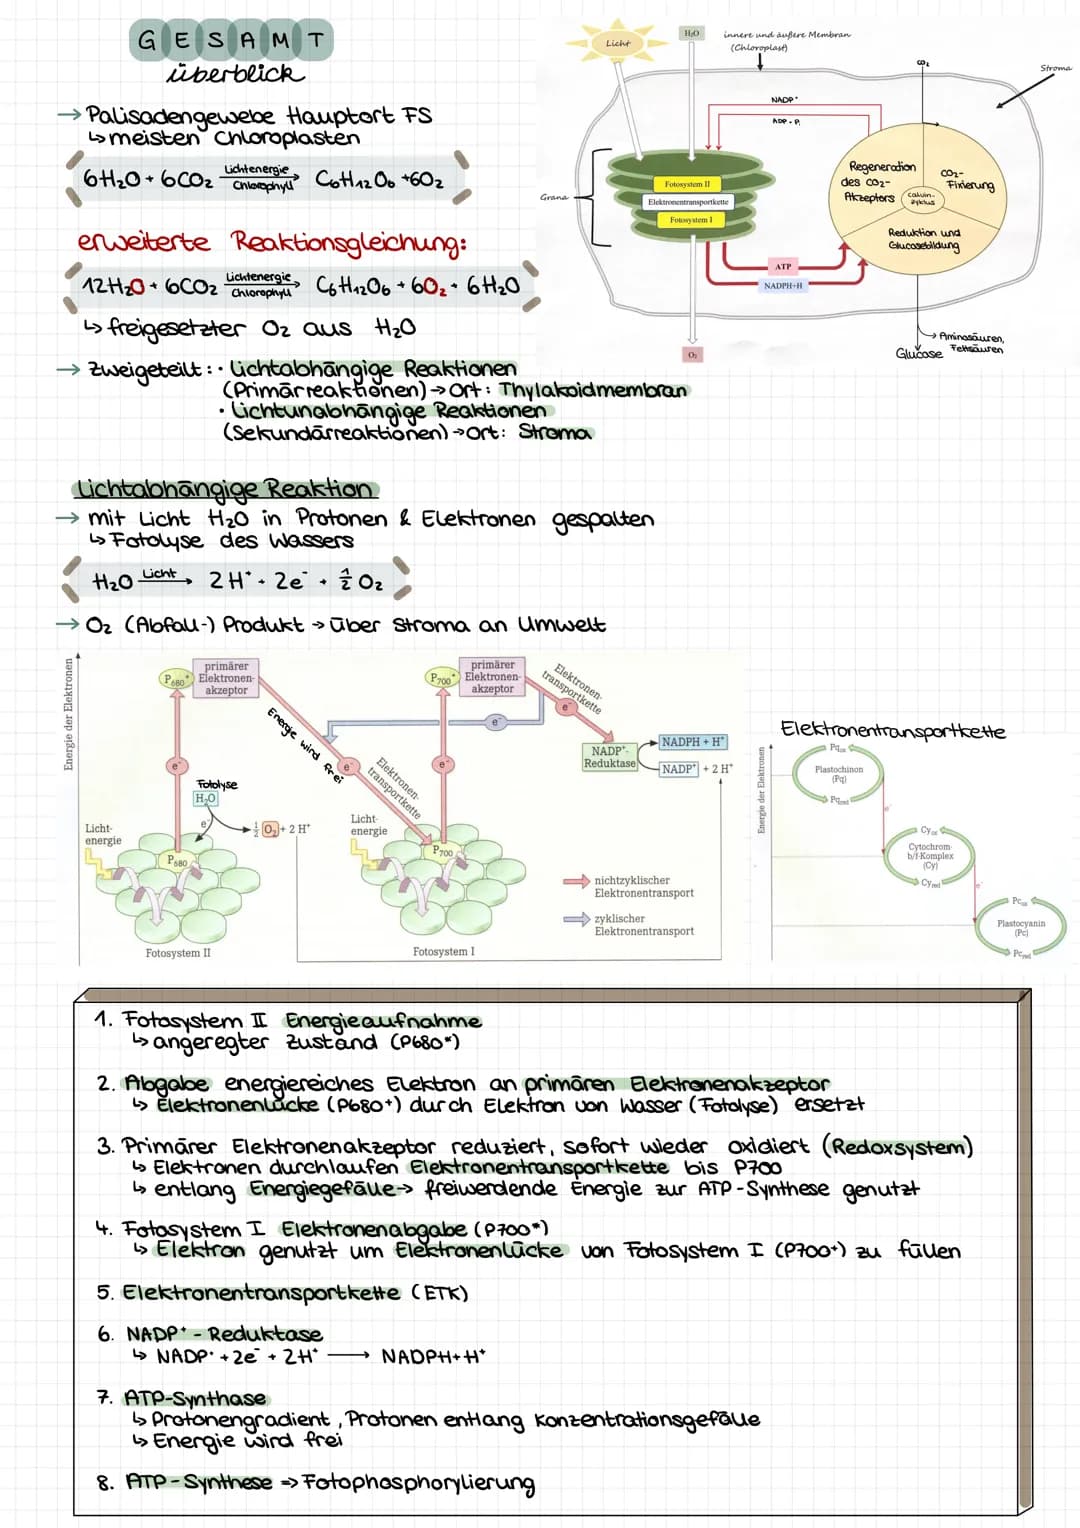 GESAMT
überblick
→ Palisadengewebe Hauptort FS
↳ meisten Chloroplasten
6H₂O + 6CO₂ Lichtenergie Chlorophyll → C₆H₁₂O₆ + 6O₂
erweiterte Reaktionsgleichung:
12H₂O + 6CO₂ Lichtenergie Chlorophyll → C₆H₁₂O₆ + 6O₂ + 6H₂O
↳ freigesetzter O₂ aus H₂O
→ Zweigeteilt: · Lichtabhängige Reaktionen
(Primärreaktionen) → Ort: Thylakoidmembran
· Lichtunabhängige Reaktionen
(Sekundärreaktionen) → Ort: Stroma
Licht
H₂O
innere und äußere Membran
(Chloroplast)
Stroma
CO₂
NADP⁺
ADP + P.
Grana
Fotosystem II
Elektronentransportkette
Fotosystem I
Regeneration
des CO₂-
Akzeptors
CO₂-
Fixierung
Calvin-
zyklus
Reduktion und
Glucosebildung
ATP
NADPH+H
O₂
Glucose
Aminosäuren,
Fettsäuren
Lichtabhängige Reaktion
→ mit Licht H₂O in Protonen & Elektronen gespalten
↳ Fotolyse des Wassers
H₂O Licht → 2H⁺ + 2e⁻ + ½ O₂
→ O₂ (Abfall-) Produkt → über Stroma an Umwelt
Energie der Elektronen
P₆₈₀*
primärer
Elektronen-
akzeptor
Energie wird frei
e⁻
Fotolyse
H₂O
e⁻
½ O₂ + 2 H⁺
Licht-
energie
P₆₈₀
Fotosystem II
e⁻
Elektronen-
transportkette
P₇₀₀*
primärer
Elektronen-
akzeptor
e⁻
e⁻
Licht-
energie
P₇₀₀
Fotosystem I
Elektronen-
transportkette
e⁻
NADP⁺-
Reduktase
NADPH + H⁺
NADP⁺ + 2 H⁺
nichtzyklischer
Elektronentransport
zyklischer
Elektronentransport
Elektronentransportkette
Energie der Elektronen
Pqox
Plastochinon
(Pq)
Pqred
e⁻
Cyox
Cytochrom-
b/f-Komplex
(Cy)
Cyred
e⁻
Pcox
Plastocyanin
(Pc)
Pcred
1. Fotosystem II Energieaufnahme
↳ angeregter Zustand (P680*)
2. Abgabe energiereiches Elektron an primären Elektronenakzeptor
↳ Elektronenlücke (P680+) durch Elektron von Wasser (Fotolyse) ersetzt
3. Primärer Elektronenakzeptor reduziert, sofort wieder oxidiert (Redoxsystem)
↳ Elektronen durchlaufen Elektronentransportkette bis P700
↳ entlang Energiegefälle → freiwerdende Energie zur ATP-Synthese genutzt
4. Fotosystem I Elektronenabgabe (P700*)
↳ Elektron genutzt um Elektronenlücke von Fotosystem I (P700+) zu füllen
5. Elektronentransportkette (ETK)
6. NADP⁺ - Reduktase
↳ NADP⁺ + 2e⁻ + 2H⁺ → NADPH+H⁺
7. ATP-Synthase
↳ Protonengradient, Protonen entlang Konzentrationsgefälle
↳ Energie wird frei
8. ATP-Synthese ⇒ Fotophosphorylierung